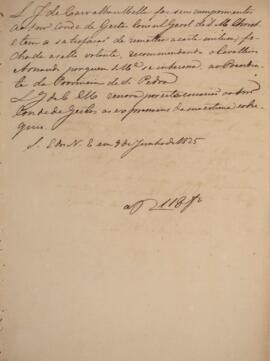 L. J. de Carvalho e Mello faz seus cumprimentos
ao Snr Conde de Gestas Consul Geral de S. M.
e tem a satisfação de remetter a carta inclusa, fe
chada a sello volante, recommendando o Cavalheiro
por quem S. Mce se interessa, ao Presiden
te da Provincia de S. Pedro.
L. J. de C. e Mello renova por esta occasião ao Snr
Conde de Gestas as expressões da sua estima e obse
quio.
S. E. dos N. E. em 9 de Junho de 1825